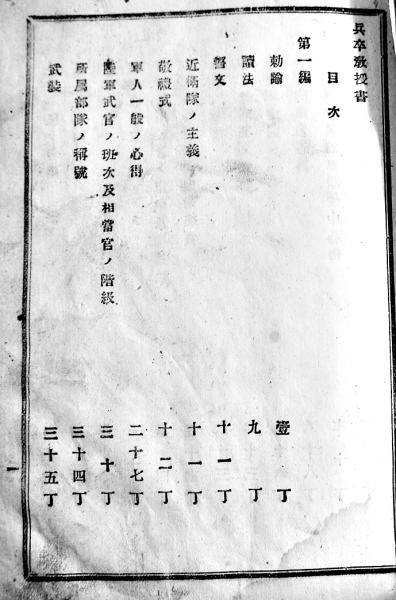 兵卒敎授書
目次
第一編
勅諭 壹丁
讀法 九丁
誓文 十一丁
近衛隊ノ主義 十一丁
敬禮式 十二丁
軍人一般ノ心得 二十七丁
陸軍武官ノ班次及相當官ノ階級 三十丁
所属部隊ノ稱號 三十四丁
武装 三十五丁